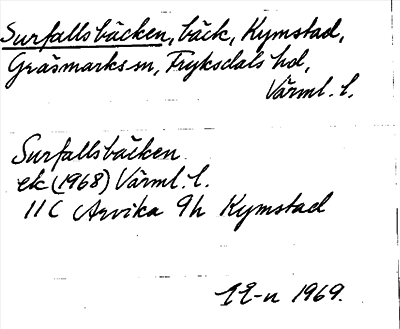 Surfallsbäcken, bäck, Kymstad,
Gräsmarks sn, Fryksdals hd,
Värml. l.
Surfallsbäcken
ek (1968) Värml. l.
11C Arvika 9h Kymstad
1969.